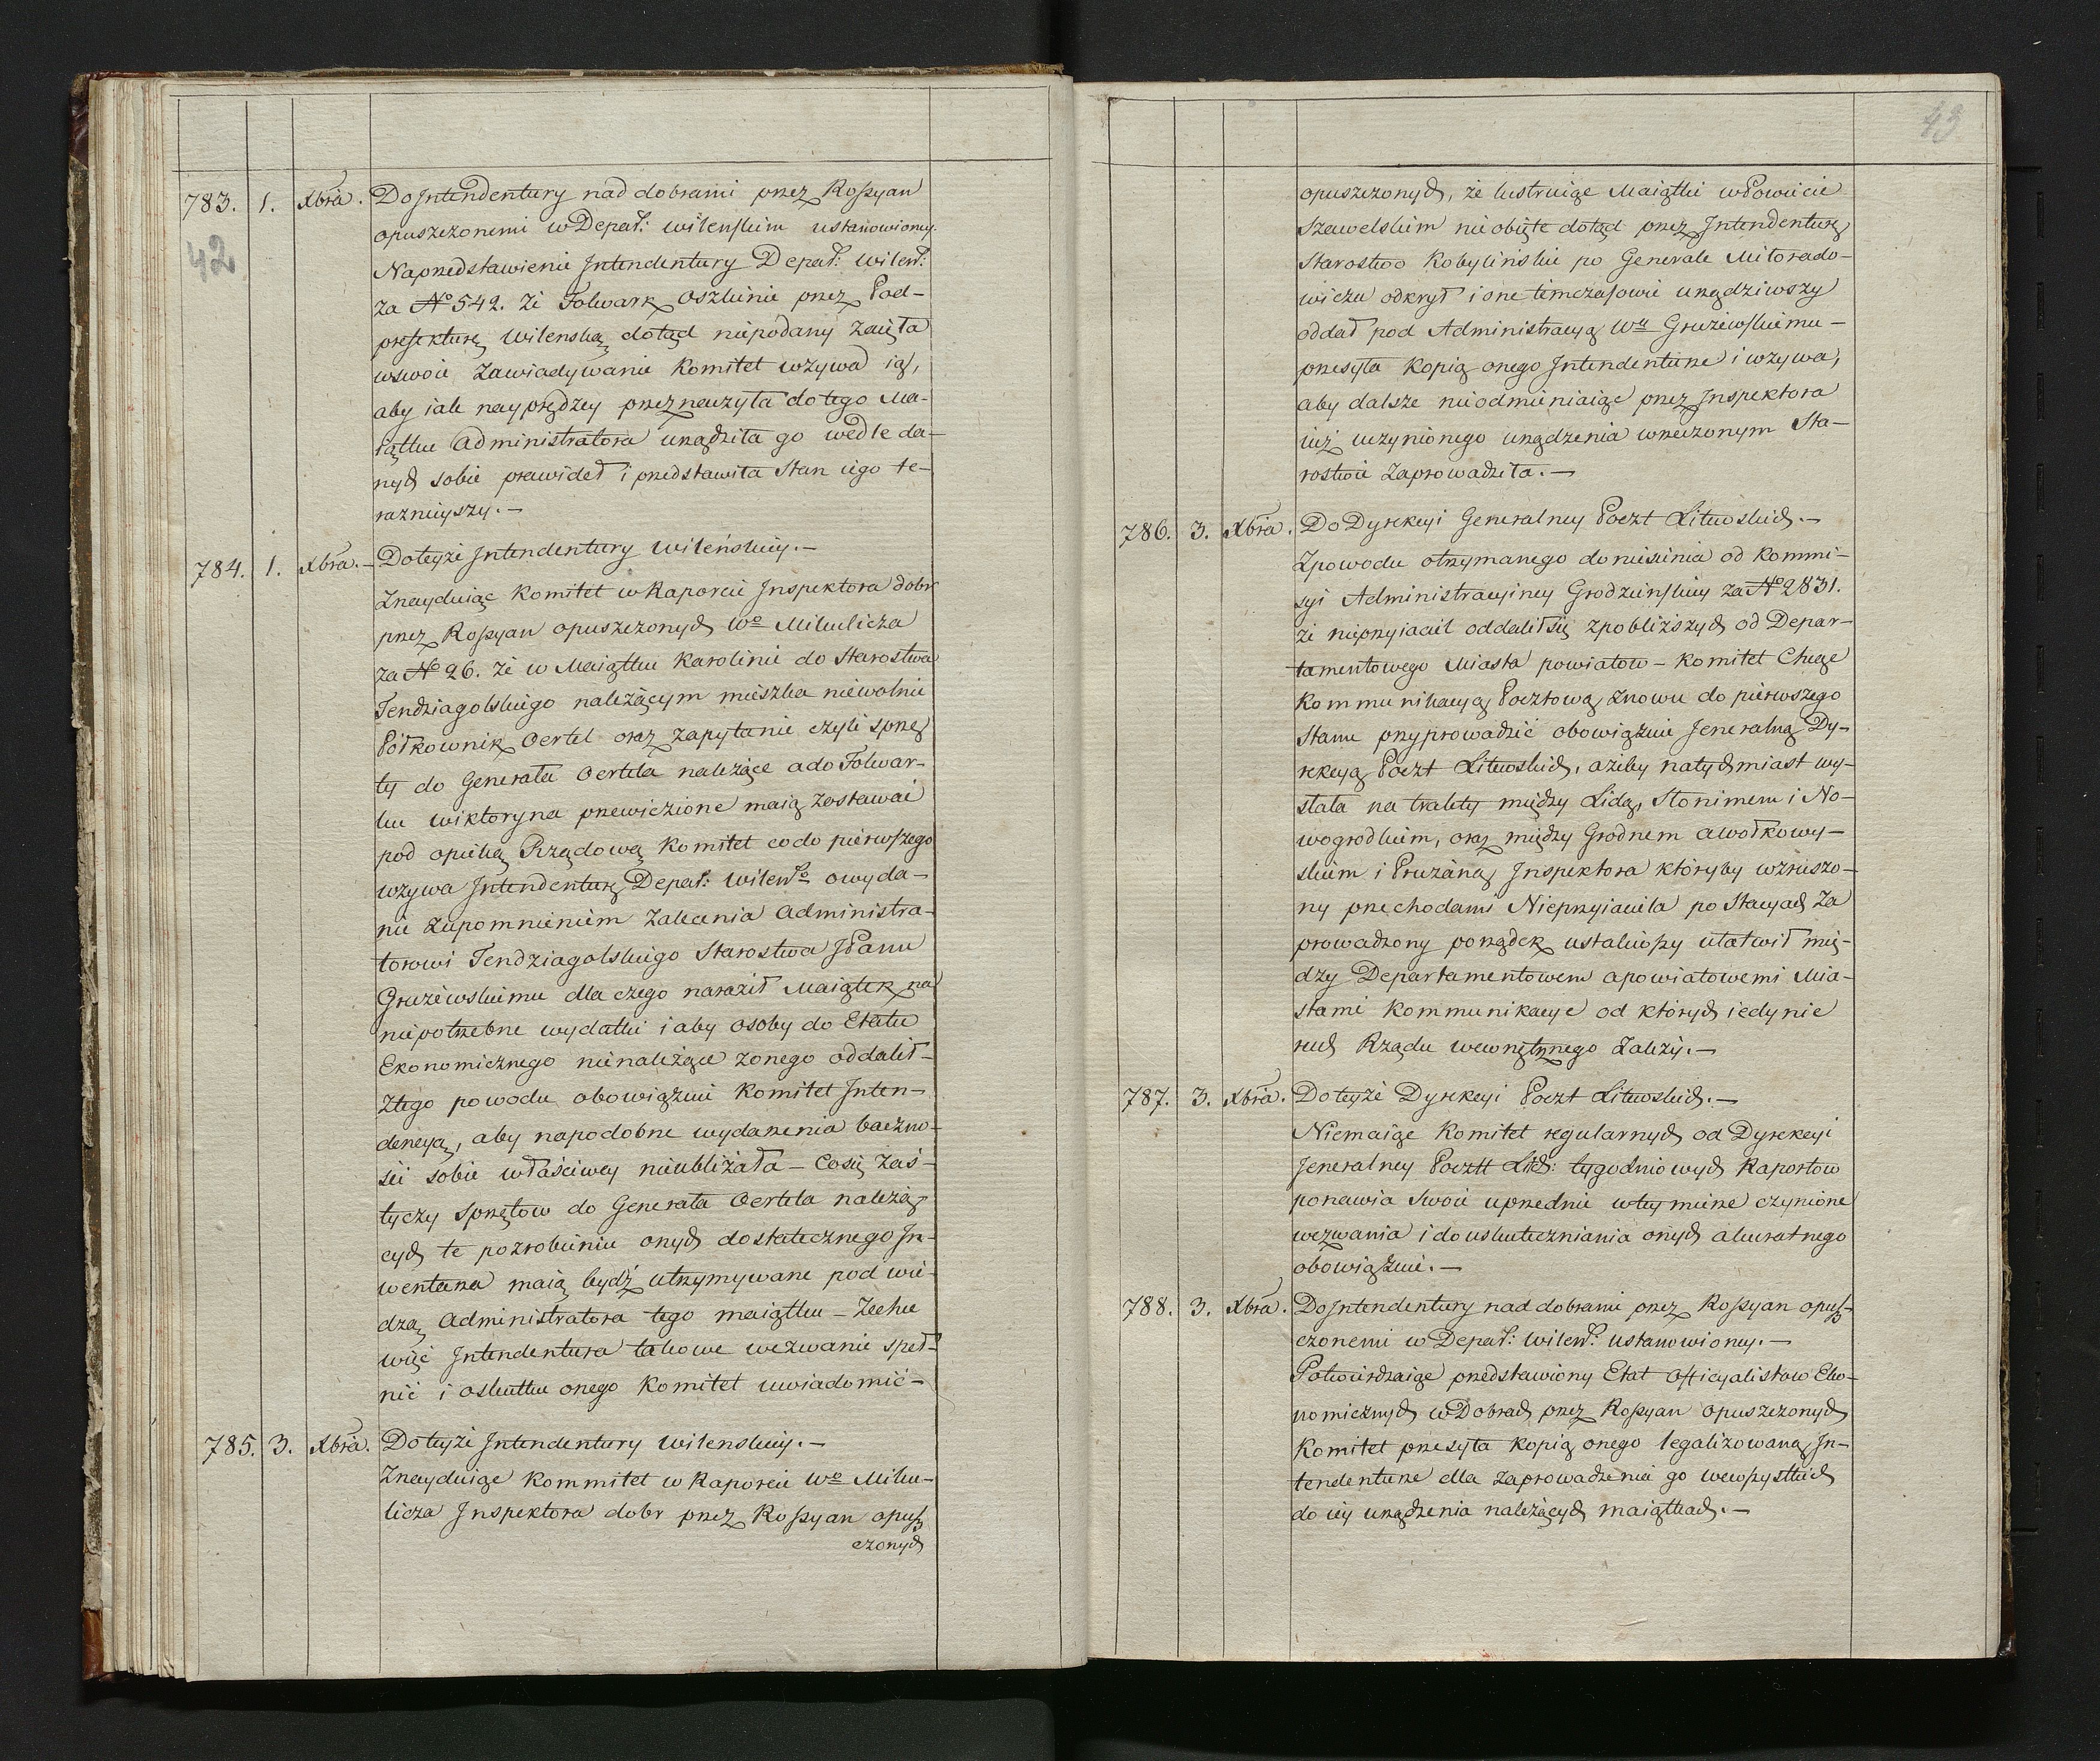 783. 1. Xbra. Do Intendentury nad dobrami przez Rossyan
opuszczonemi w Depat: wileńskim ustanowioney.
Na przedstawienie Intendentury Depat: Wileńs:
42
za No 542. że Folwark Oszkinie przez Pod-
prefekturę Wilenską dotąd niepodany zaięła
w swoie zawiadywanie Komitet wzywa ią,
aby iak nayprędzey przeznaczyła do tego Ma-
iątku Administratora urządziła go wedle da-
nych sobie prawideł i przedstawiła Stan iego te-
raznieyszy. —
784. 1. Xbra. — Do teyże Intendentury Wileńskiey. —
Znayduiąc Komitet w Raporcie Inspektora dobr
przez Rossyan opuszczonych Wo Mikulicza
za No 26. że w Maiątku Karolinie do Starostwa
Tendziagolskiego należącym mieszka niewolnie
Półkownik Oertel oraz zapytanie czyli sprzę
ty do Generała Oertela należące a do Folwar-
ku Wiktoryna przewiezione maią zostawać
pod opieką Rządową Komitet co do pierwszego
wzywa Intendenturę Depat: Wileńso o wyda-
nie z upomnieniem zalecenia Administra-
torowi Tendziagolskiego Starostwa JPanu
Grużewskiemu dla czego naraził Maiątek na
niepotrzebne wydatki i aby osoby do Etatu
Ekonomicznego nienależące z onego oddalił —
Z tego powodu obowiązuie Komitet Inten-
dencyą, aby na podobne wydarzenia baczno-
ści sobie właściwey nieubliżała — Co się zaś —
tyczy sprzętow do Generała Oertela należą-
cych te po zrobieniu onych dostatecznego In-
wentarza maią bydź utrzymywane pod wie-
dzą Administratora tego maiątku — Zechce
więc Intendentura takowe wezwanie speł-
nić i o skutku onego Komitet uwiadomić —
785. 3. Xbra. Do teyże Intendentury Wilenskiey. —
Znayduiąc Kommitet w Raporcie Wo Miku-
licza Inspektora dobr przez Rossyan opusz
czonych
43
opuszczonych, że lustruiąc Maiątki w Powiecie
Szawelskim nie obięte dotąd przez Intendenturę
Starostwo Kobylińskie po Generale Miłorado-
wiczu odkrył i one tęmczasowie urządziwszy
oddał pod Administracyą Wu Grużewskiemu —
przesyła kopią onego Intendenturze i wzywa,
aby dalsze nieodmieniaiąc przez Inspektora
iuż uczynionego urządzenia w rzeczonym Sta-
rostwie zaprowadziła. —
786. 3. Xbra. Do Dyrekcyi Generalney Poczt Litewskich. —
Z powodu otrzymanego doniesienia od Kommi-
syi Administracyiney Grodzieńskiey za No 2831.
że nieprzyiaciel oddalił się z pobliższych od Depar-
tamentowego Miasta powiatow — Komitet Chcąc
Kommunikacyą Pocztową znowu do pierwszego
Stanu przyprowadzić obowiązuie Jeneralną Dy-
rekcyą Poczt Litewskich, ażeby natychmiast wy-
słała na trakty między Lidą, Słonimem i No-
wogrodkiem, oraz między Grodnem a Wołkowy-
skiem i Prużaną Inspektora któryby wzruszo-
ny przechodami Nieprzyiaciela po Stacyach za
prowadzony porządek ustaliwszy ułatwił mię-
dzy Departamentowem a powiatowemi Mia-
stami Kommunikacye od których iedynie
ruch Rządu wewnętrznego zależy. —
787. 3. Xbra. Do teyże Dyrekcyi Poczt Litewskich. —
Niemaiąc Komitet regularnych od Dyrekcyi
Jeneralney Poczt Lich: tygodniowych Raportow
ponawia swoie uprzednie w tey mierze czynione
wezwania i do uskuteczniania onych akuratnego
obowiązuie. —
788. 3. Xbra. Do Intendentury nad dobrami przez Rossyan opusz-
czonemi w Depat: Wileńs: ustanowioney. —
Potwierdzaiąc przedstawiony Etat Officyalistow Eko-
nomicznych w Dobrach przez Rossyan opuszczonych
Komitet przesyła kopią onego legalizowaną In-
tendenturze dla zaprowadzenia go we wszystkich
do iey urządzenia należących maiątkach. —